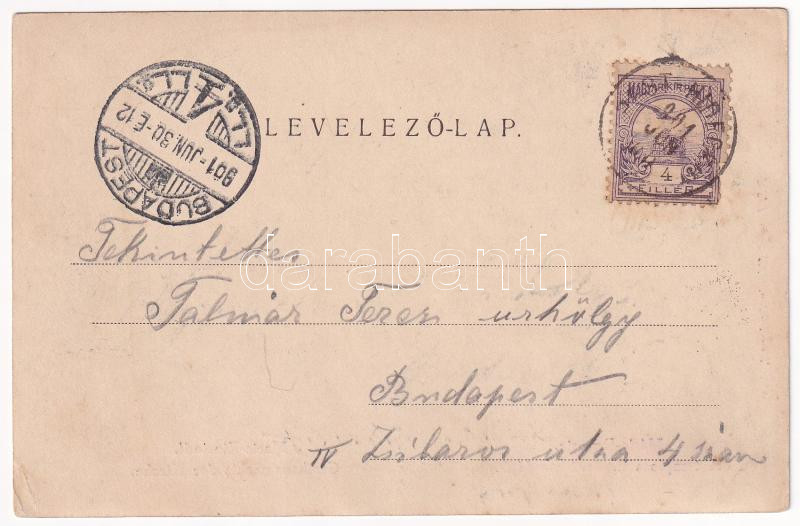 LEVELEZŐ-LAP.
BUDAPEST
901-JUN.30.-E.12
4
MAGYAR KIR. POSTA
4
FILLÉR
Tekintetes
Talmár Terez urhölgy
Budapest
IV Zsibárus utca 4 szám
darabanth